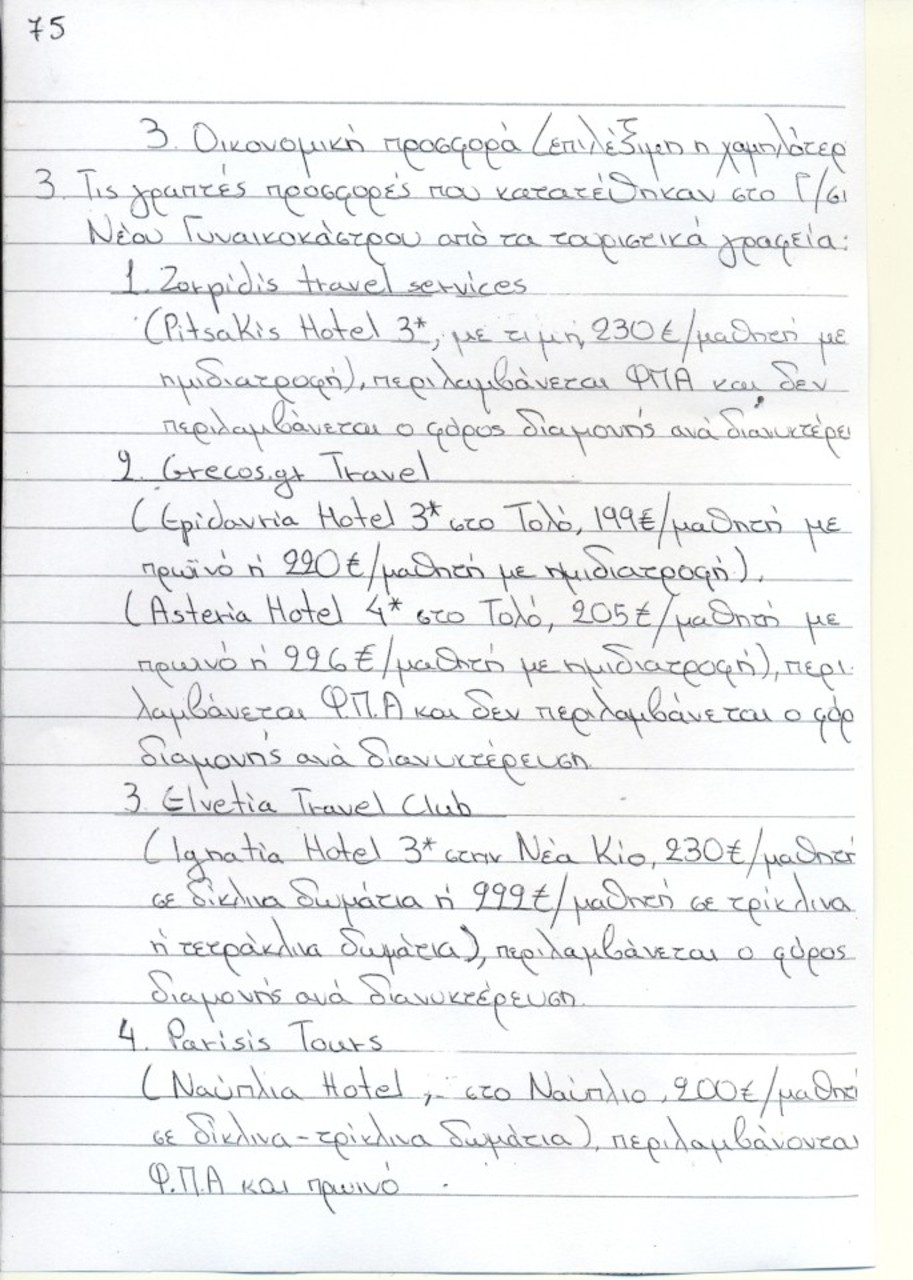 75
3. Οικονομική προσφορά (επιλέξιμη η χαμηλότερ
3. Τις γραπτές προσφορές που κατατέθηκαν στο Γ/σι
Νέου Γυναικοκάστρου από τα τουριστικά γραφεία:
1. Zorpidis travel services
(Pitsakis Hotel 3*, με τιμή 230€/μαθητή με
ημιδιατροφή), περιλαμβάνεται ΦΠΑ και δεν
περιλαμβάνεται ο φόρος διαμονής ανά διανυκτέρε
2. Grecos.gr Travel
(Epidavria Hotel 3* στο Τολό, 199€/μαθητή με
πρωϊνό ή 220€/μαθητή με ημιδιατροφή).
(Asteria Hotel 4* στο Τολό, 205€/μαθητή με
πρωινό ή 226€/μαθητή με ημιδιατροφή), περι-
λαμβάνεται Φ.Π.Α και δεν περιλαμβάνεται ο φόρ
διαμονής ανά διανυκτέρευση.
3. Elvetia Travel Club
(Ignatia Hotel 3* στην Νέα Κίο, 230€/μαθητή
σε δίκλινα δωμάτια ή 222€/μαθητή σε τρίκλινα
ή τετράκλινα δωμάτια), περιλαμβάνεται ο φόρος
διαμονής ανά διανυκτέρευση.
4. Parisis Tours
(Ναύπλια Hotel, - στο Ναύπλιο, 200€/μαθητή
σε δίκλινα-τρίκλινα δωμάτια), περιλαμβάνονται
Φ.Π.Α και πρωινό.